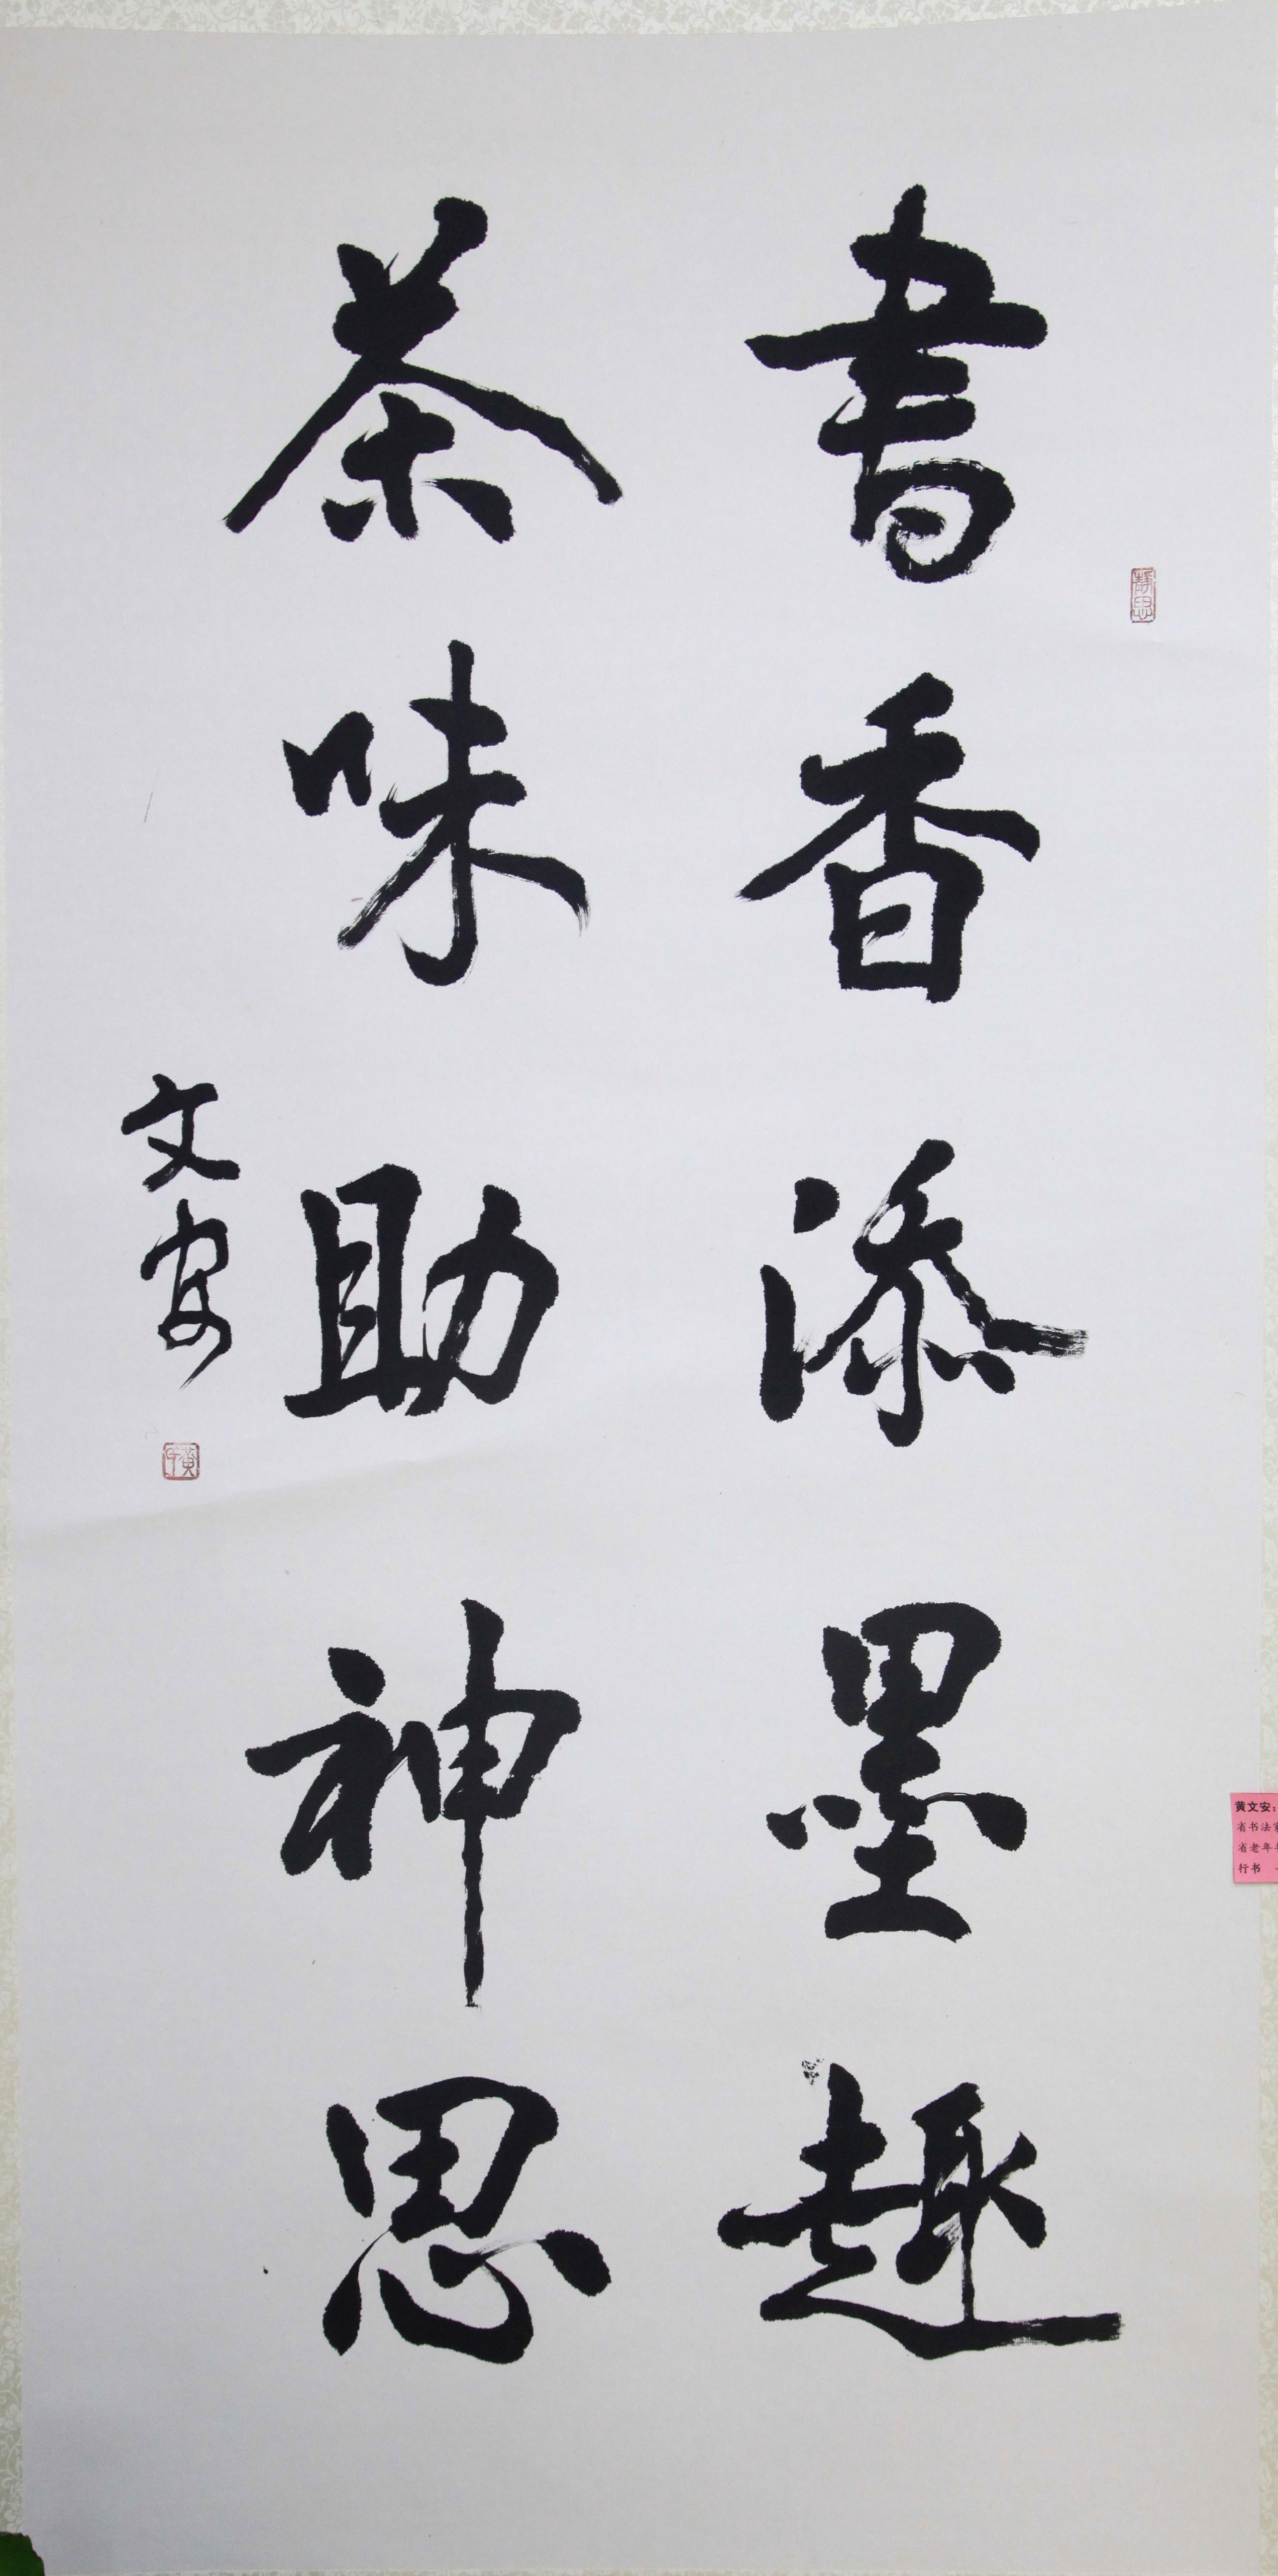 書香添墨趣
茶味助神思
文安
靜思
黄文安：
省书法家
省老年书
行书